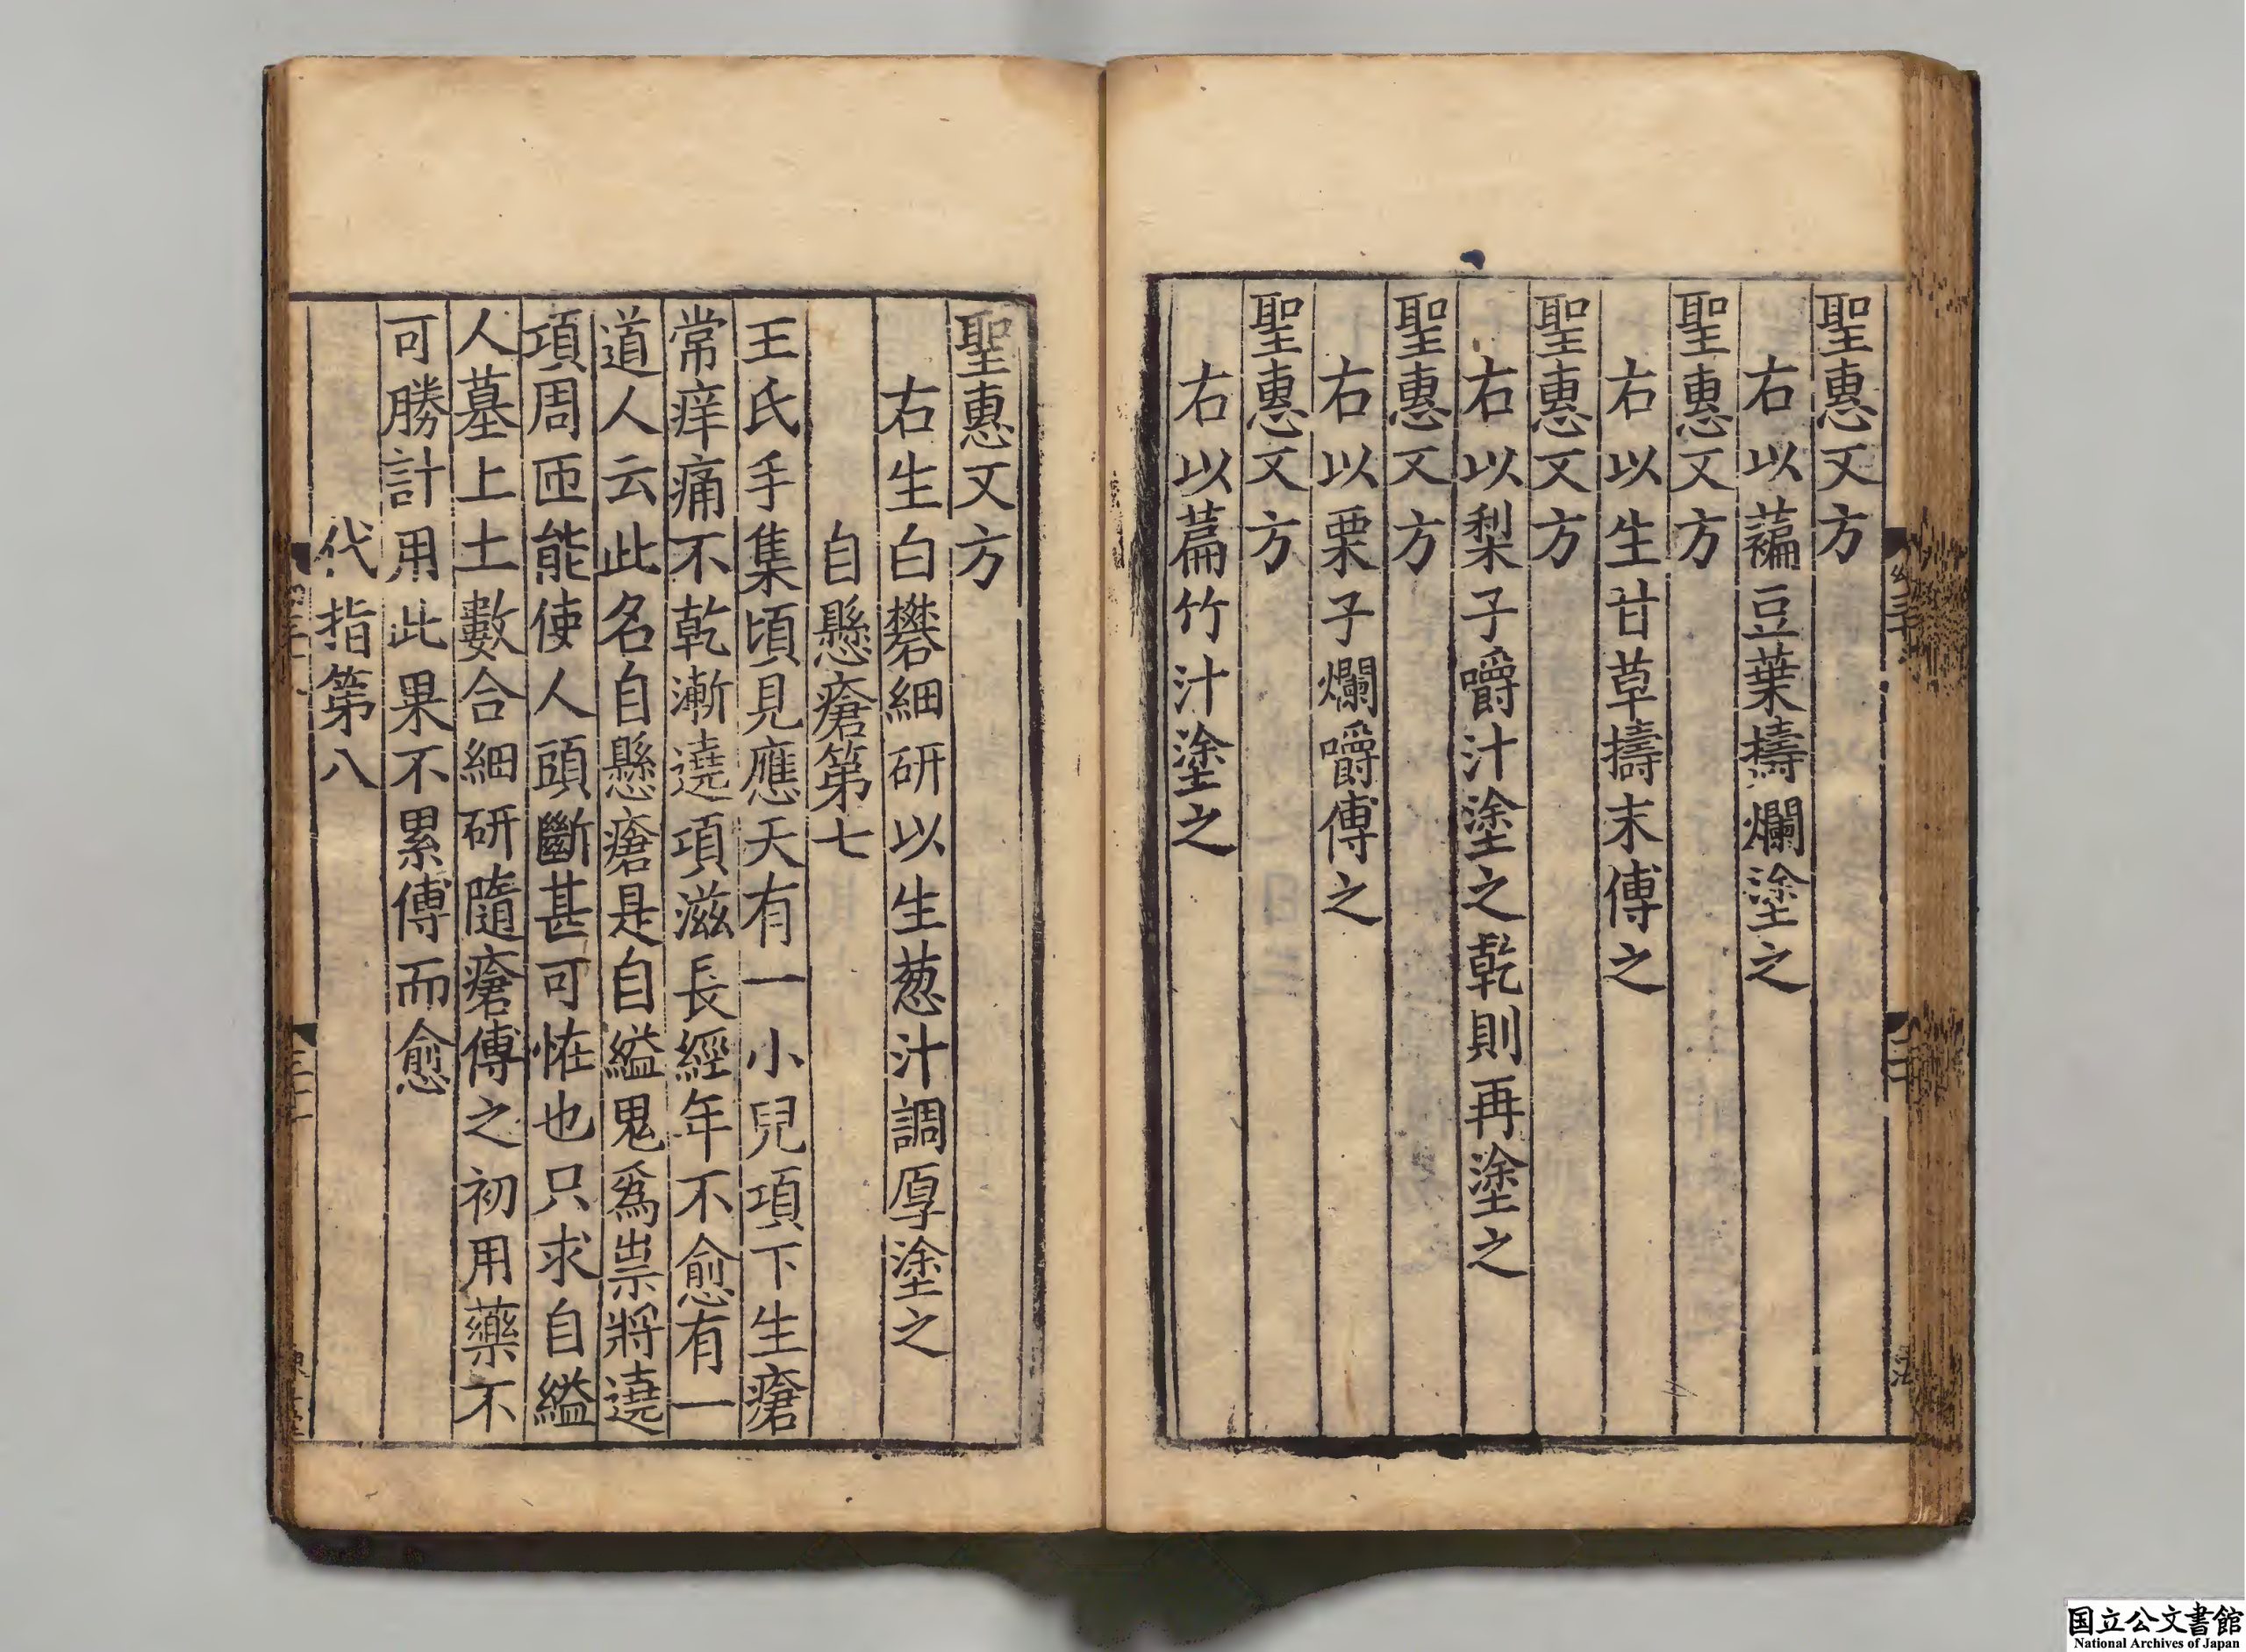 聖惠又方
右以藊豆葉擣爛塗之
聖惠又方
右以生甘草擣末傅之
聖惠又方
右以梨子嚼汁塗之乾則再塗之
聖惠又方
右以栗子爛嚼傅之
聖惠又方
右以萹竹汁塗之
聖惠又方
右生白礬細研以生葱汁調厚塗之
自懸瘡第七
王氏手集頃見應天有一小兒項下生瘡
常痒痛不乾漸遶項滋長經年不愈有一
道人云此名自懸瘡是自縊鬼爲祟將遶
項周匝能使人頭斷甚可恠也只求自縊
人墓上土數合細研隨瘡傅之初用藥不
可勝計用此果不累傅而愈
代指第八
国立公文書館
National Archives of Japan